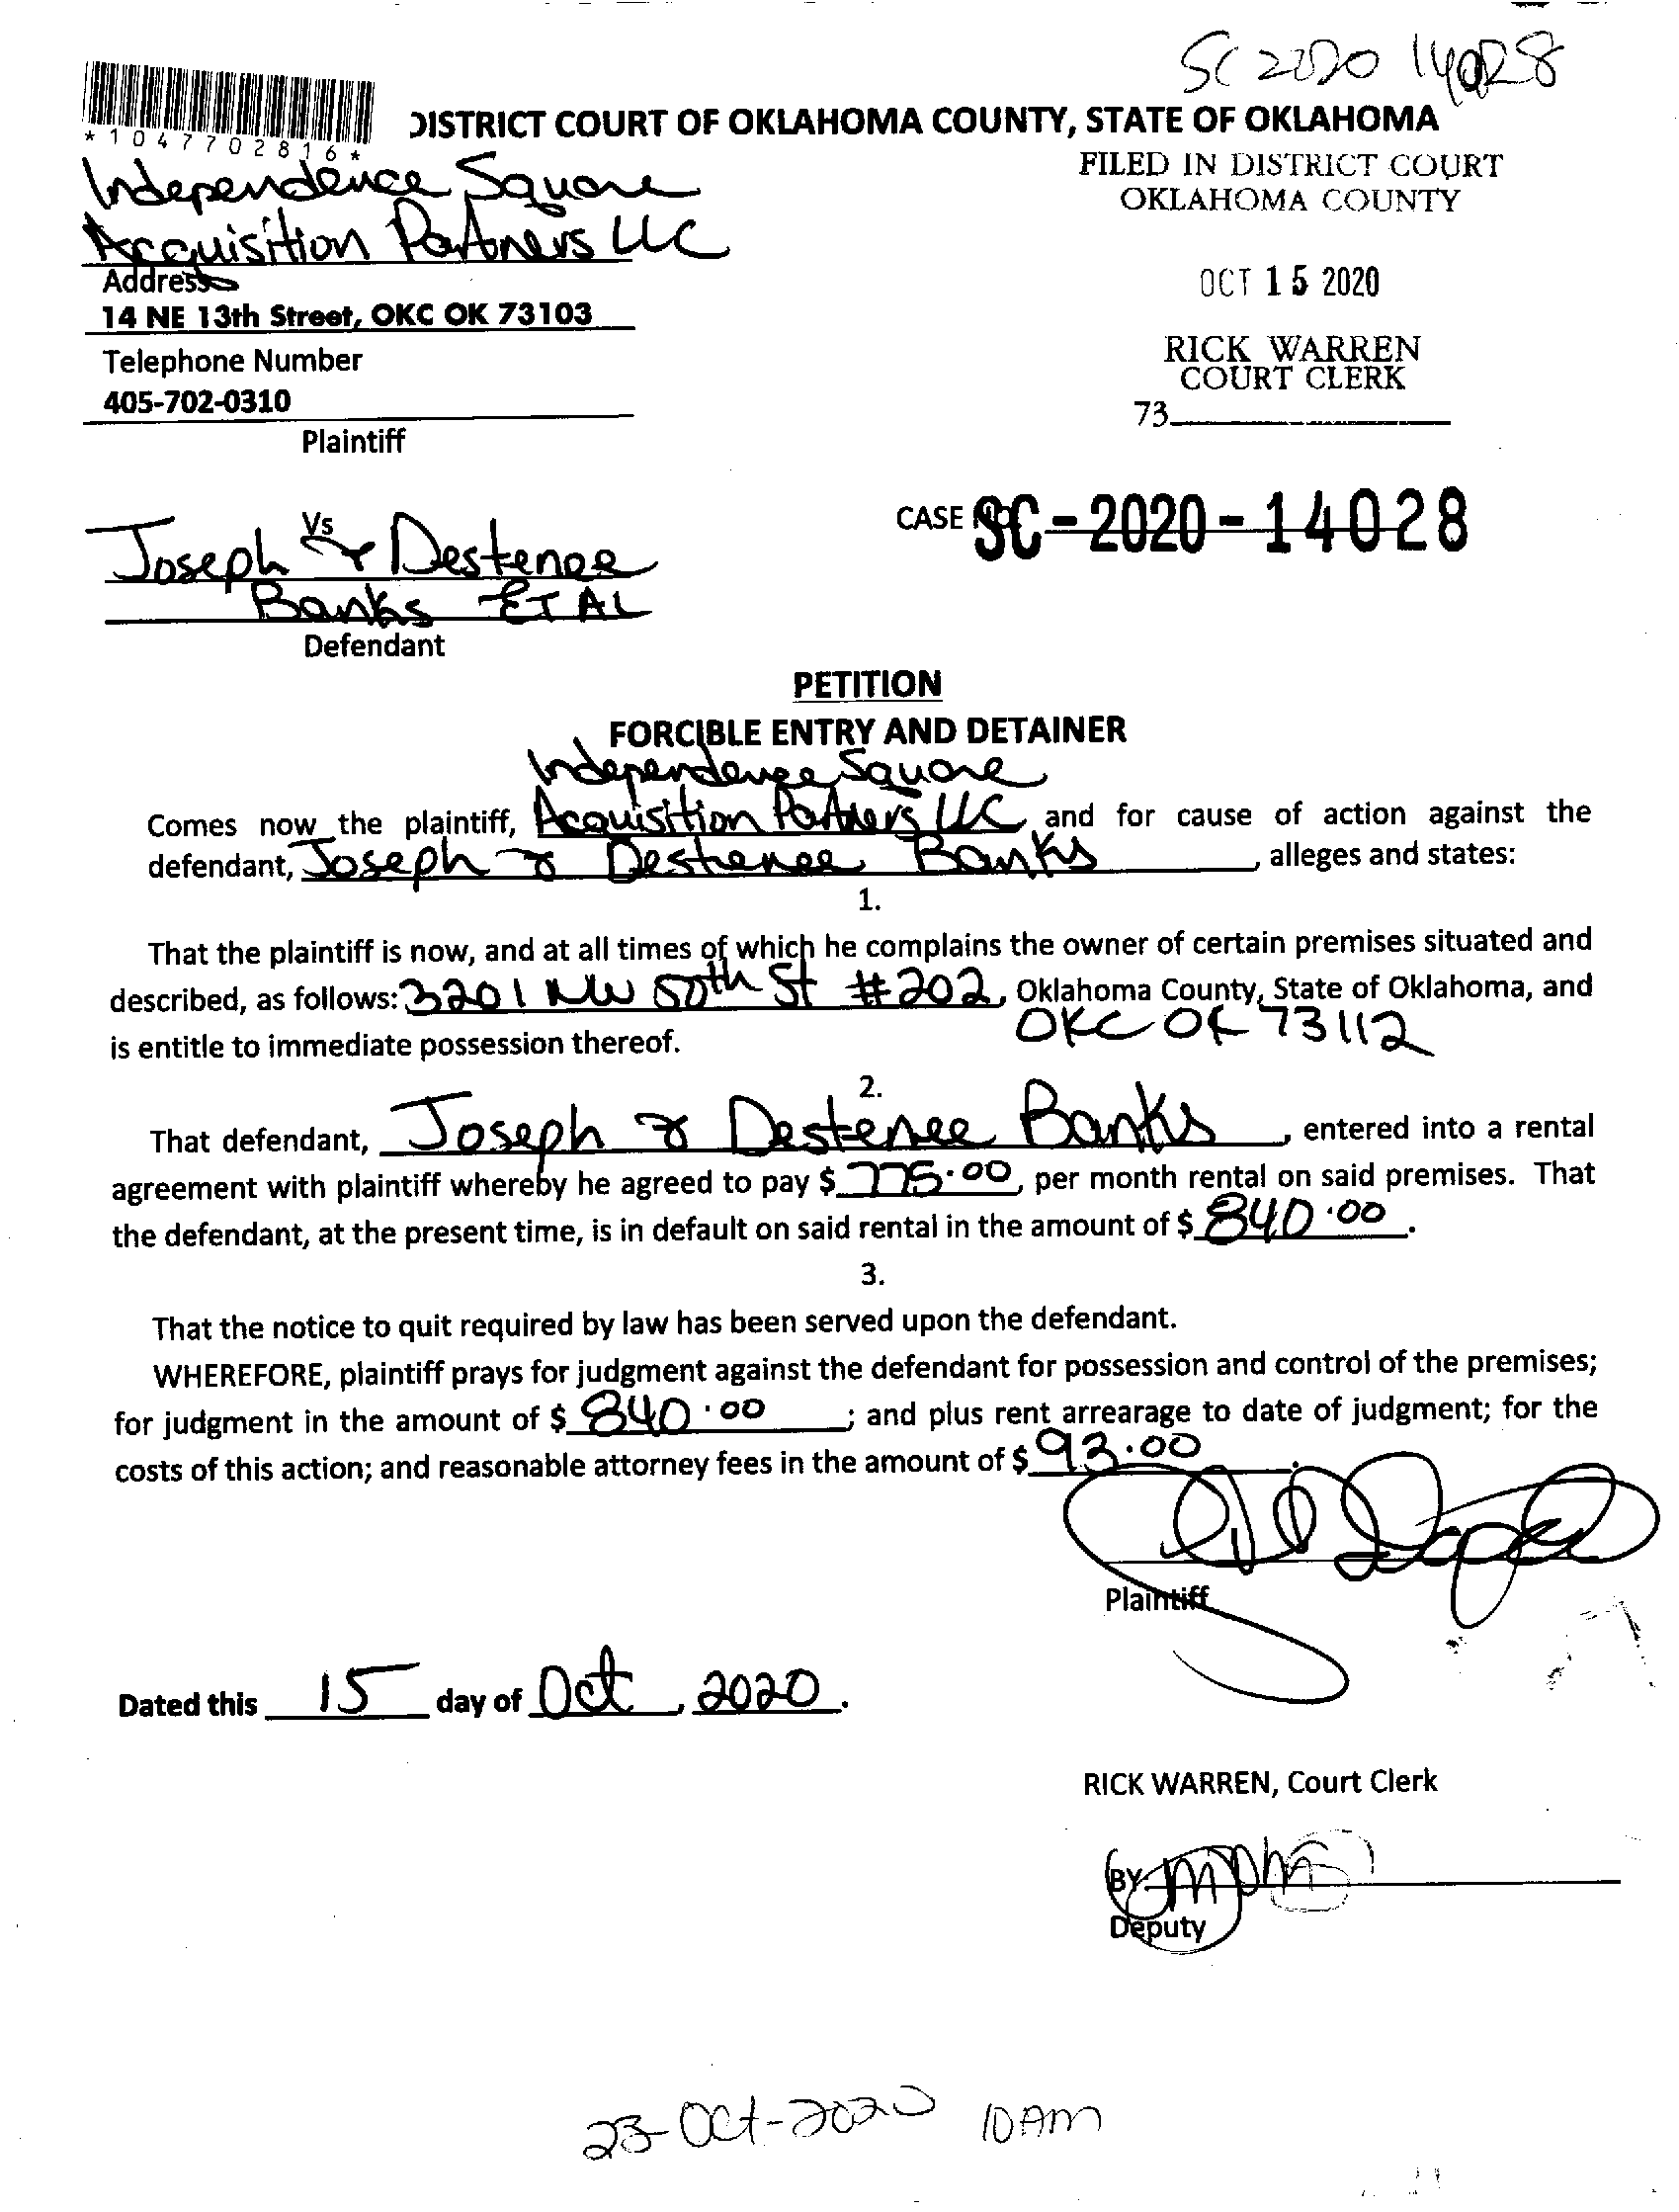 SC 2020 14028
*1047702816*
DISTRICT COURT OF OKLAHOMA COUNTY, STATE OF OKLAHOMA
FILED IN DISTRICT COURT
OKLAHOMA COUNTY
Independence Square
Acquisition Partners LLC
Address
14 NE 13th Street, OKC OK 73103
Telephone Number
405-702-0310
Plaintiff
OCT 15 2020
RICK WARREN
COURT CLERK
73
Vs
Joseph & Destenee
Banks ET AL
Defendant
CASE NO
SC-2020-14028
PETITION
FORCIBLE ENTRY AND DETAINER
Independence Square
Comes now the plaintiff, Acquisition Partners LLC and for cause of action against the
defendant, Joseph & Destenee Banks, alleges and states:
1.
That the plaintiff is now, and at all times of which he complains the owner of certain premises situated and
described, as follows: 3201 NW 50th St #202, Oklahoma County, State of Oklahoma, and
OKC OK 73112
is entitle to immediate possession thereof.
2.
That defendant, Joseph & Destenee Banks, entered into a rental
agreement with plaintiff whereby he agreed to pay $ 775.00, per month rental on said premises. That
the defendant, at the present time, is in default on said rental in the amount of $ 840.00.
3.
That the notice to quit required by law has been served upon the defendant.
WHEREFORE, plaintiff prays for judgment against the defendant for possession and control of the premises;
for judgment in the amount of $ 840.00; and plus rent arrearage to date of judgment; for the
costs of this action; and reasonable attorney fees in the amount of $ 93.00.
Plaintiff
Dated this 15 day of Oct, 2020.
RICK WARREN, Court Clerk
BY
Deputy
23-Oct-2020 10AM